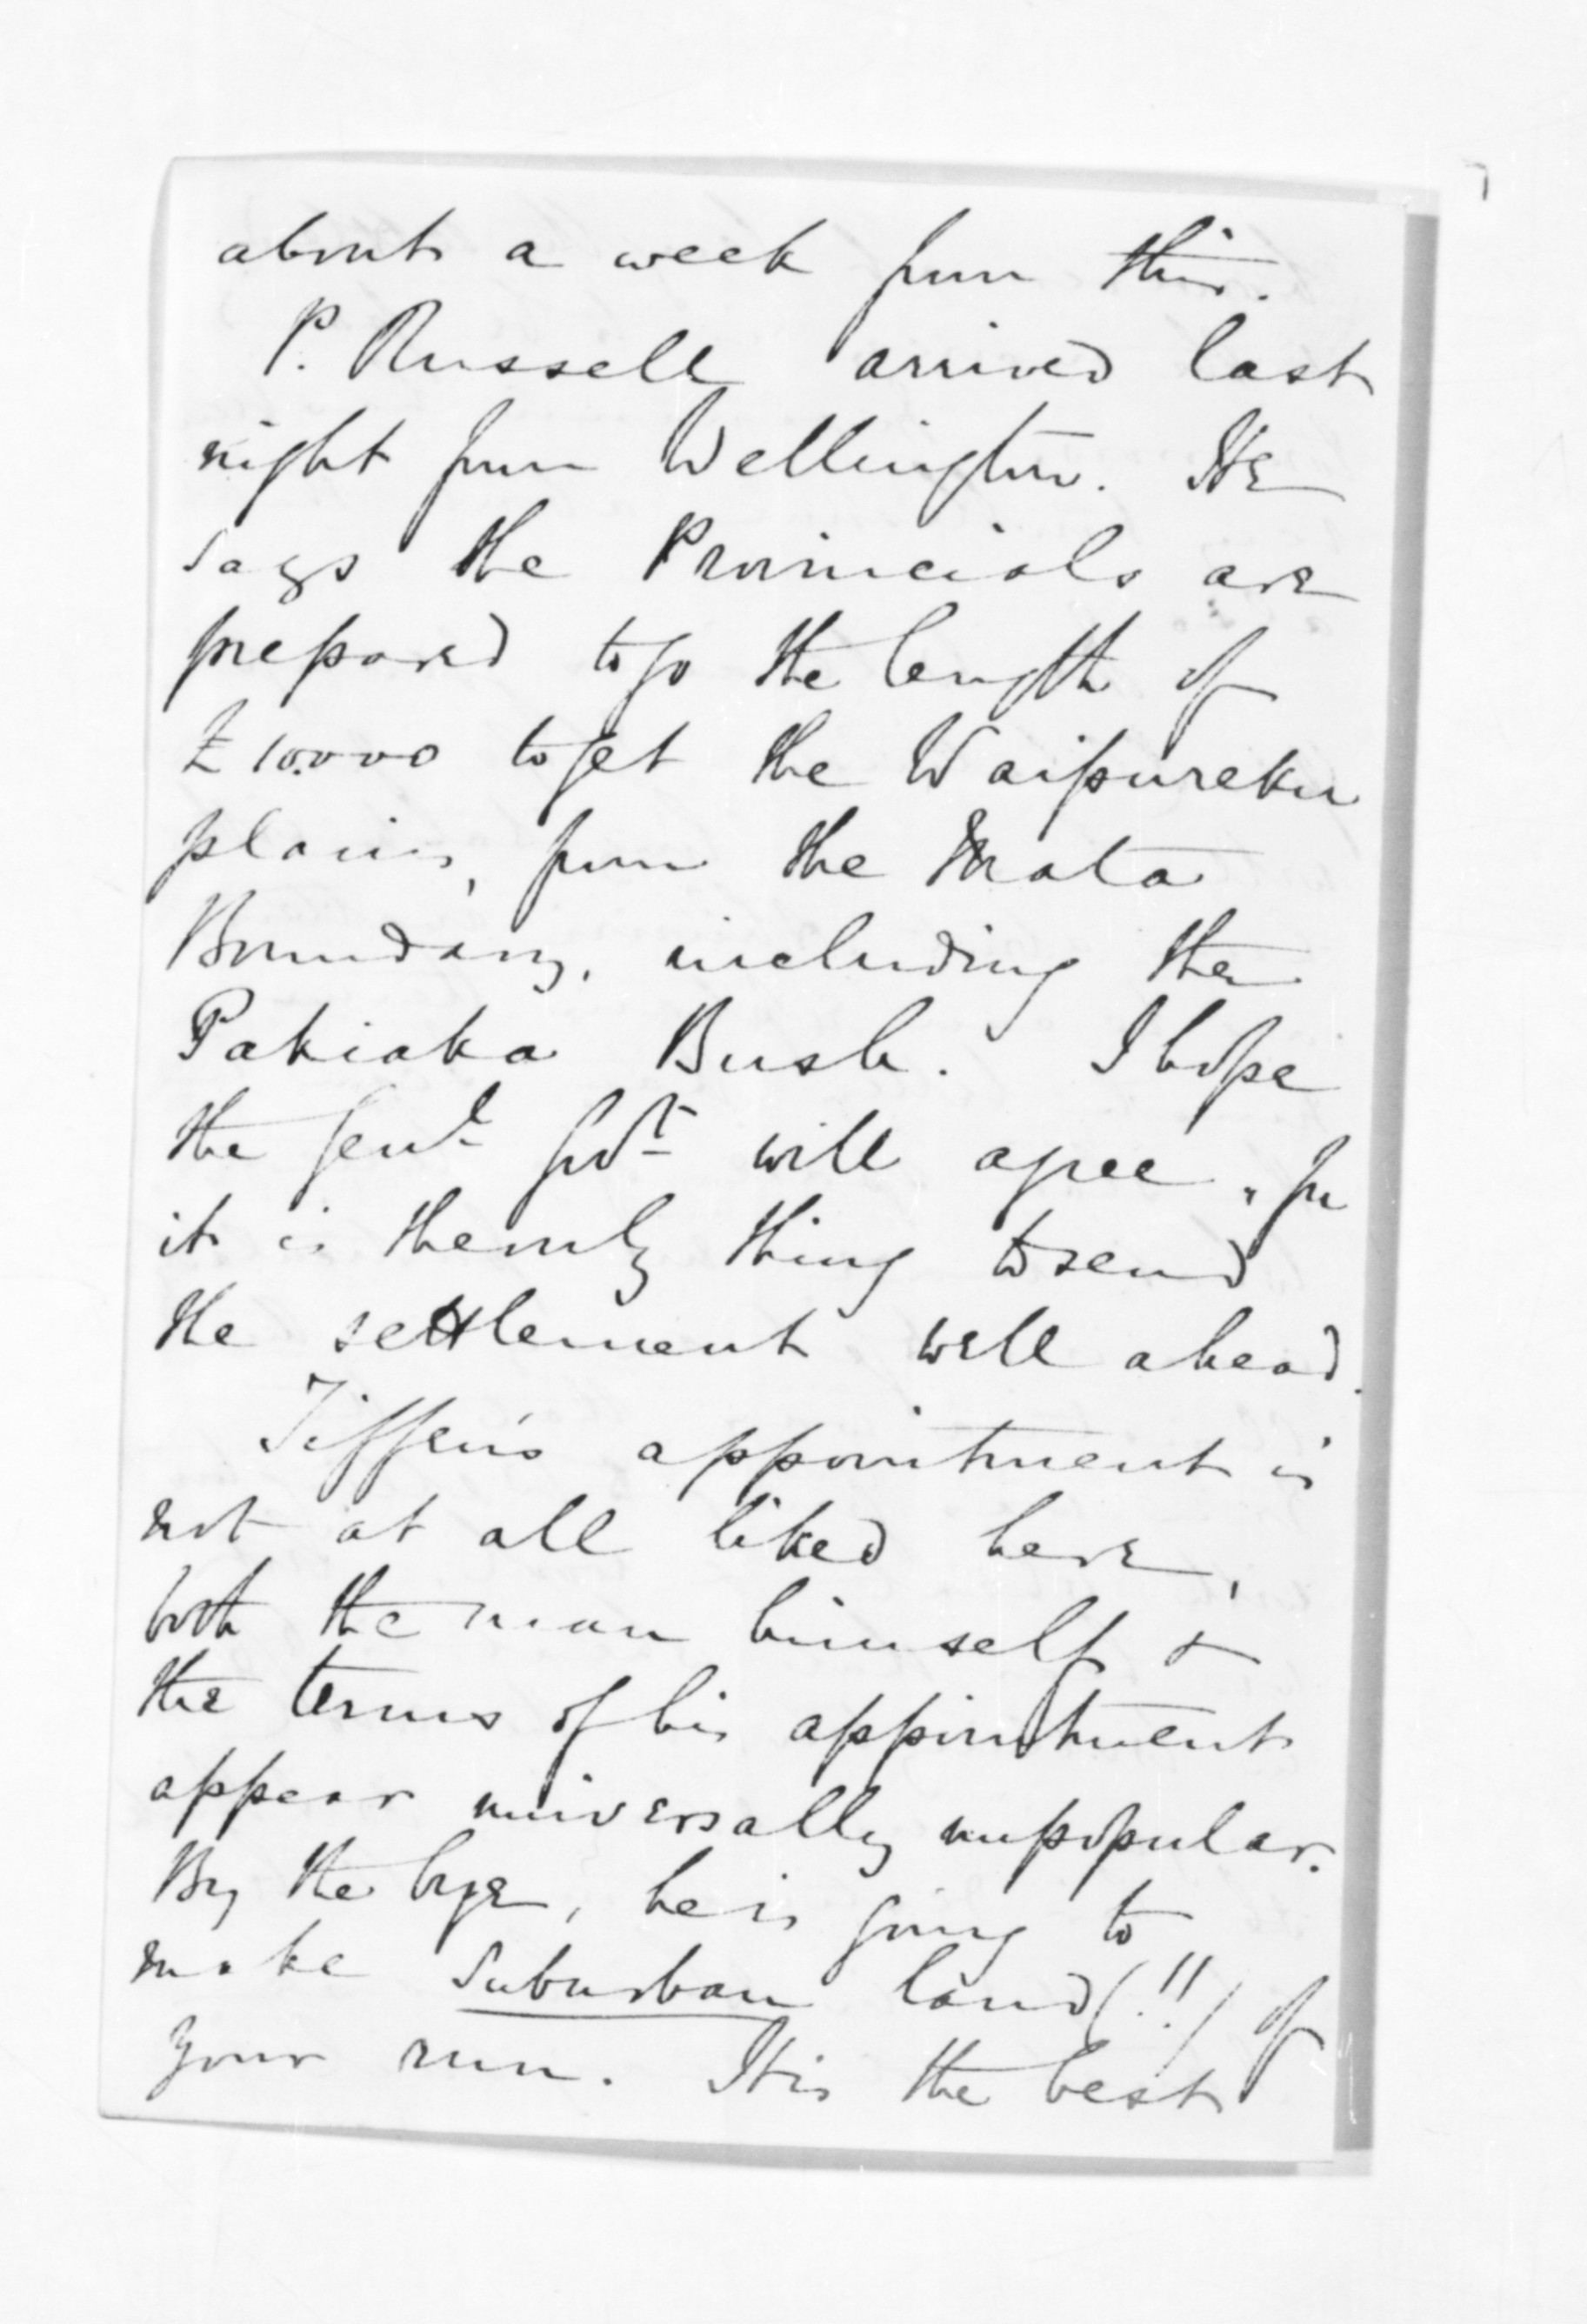 about a week from this.
P. Russell arrived last
night from Wellington. He
says the Provincials are
prepared to go the length of
£10.000 to get the Waipureku
plains, from the Mata
Boundary, including the
Pakiaka Bush. I hope
the Genl Govt will agree, for
it is the only thing to send
the settlement well ahead.
Tiffen's appointment is
not at all liked here,
both the man himself &
the terms of his appointment
appear universally unpopular.
By the bye, he is going to
make Suburban land (!!) of
your run. It is the best